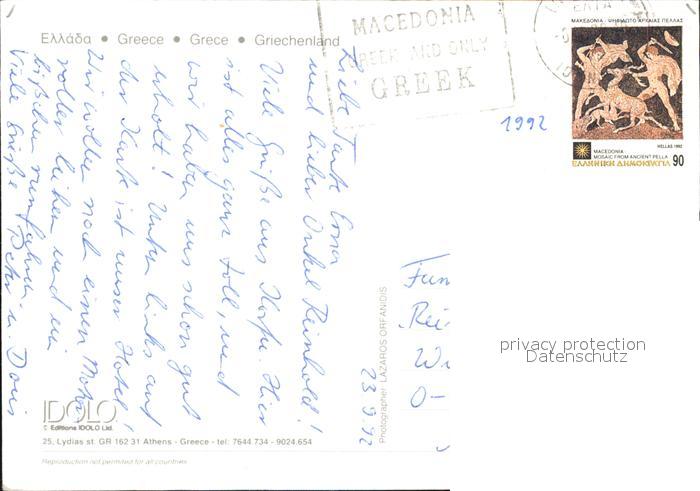 Ελλάδα • Greece • Grece • Griechenland
MACEDONIA
GREEK AND ONLY
GREEK
ΜΑΚΕΔΟΝΙΑ · ΨΗΦΙΔΩΤΟ ΑΡΧΑΙΑΣ ΠΕΛΛΑΣ
HELLAS 1992
MACEDONIA
MOSAIC FROM ANCIENT PELLA
ΕΛΛΗΝΙΚΗ ΔΗΜΟΚΡΑΤΙΑ 90
1992
Liebe Tante Erna
und lieber Onkel Reinhold!
Viele Grüße aus Korfu. Hier
ist alles ganz toll, und
wir haben uns schon gut
erholt! Unten links auf
der Karte ist unser Hotel!
Wir wollen noch einen Motor
roller leihen und ein
bißchen rumfahren.
Viele Grüße u. Doris
23.9.92
Photographer: LAZAROS ORFANIDIS
privacy protection
Datenschutz
IDOLO
© Editions IDOLO Ltd.
25, Lydias st. GR 162 31 Athens - Greece - tel: 7644.734 - 9024.654
Reproduction not permited for all countries